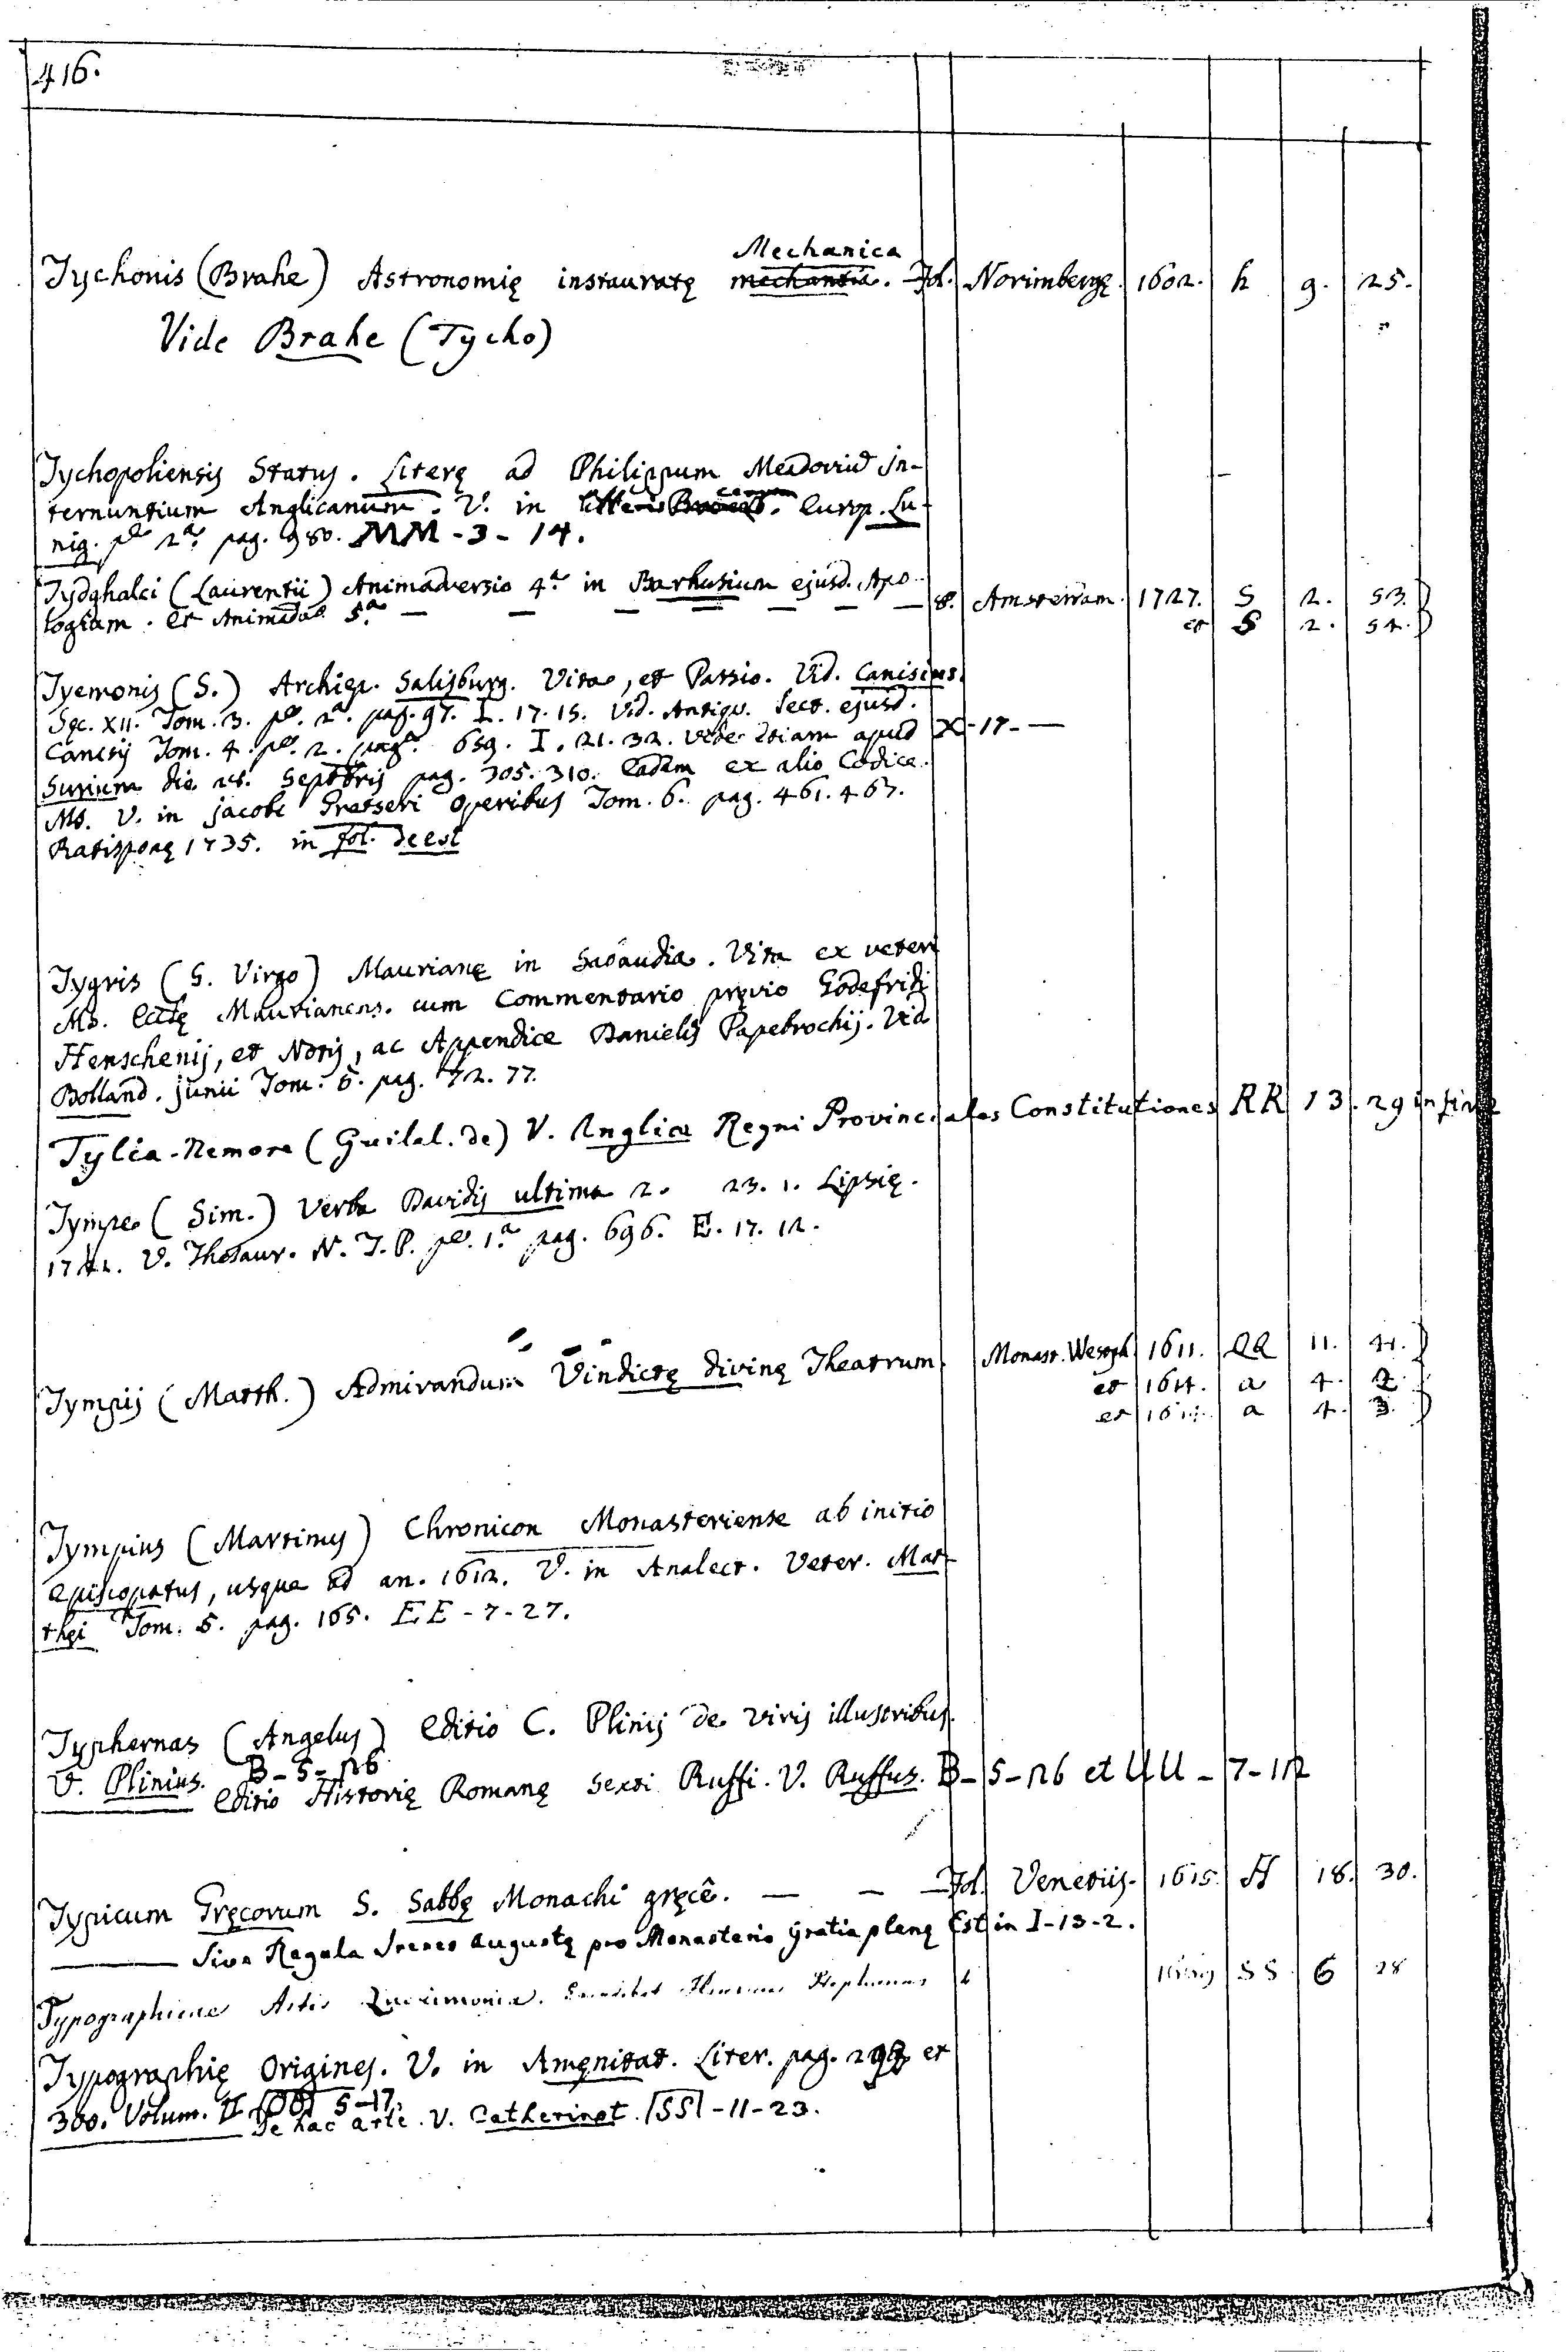 416.
Mechanica
Tychonis (Brahe) Astronomię instauratę mechanica. Fol. Norimbergę. 1602. h 9. 25.
Vide Brahe (Tycho)
Tychopoliensis Status. Literę ad Philippum Meadoviū In-
ternuntium Anglicanum. V. in Europ. Lu-
nig. 2ª. pag. 980. MM-3-14.
Tydghalei (Laurentii) Animadversio 4ª in Barkusium ejusd. Apo-
logiam. et Animadv. 5ª — — — — — — 8. Amsterdam. 1727. S 2. 53.
et S 2. 54.
Tyemonis (S.) Archiep. Salisburg. Vita, et Passio. Vid. Canisius
Sęc. XII. Tom. 3. 2ª. pag. 97. I. 17. 15. Vid. Antiqu. Lect. ejusd.
Canisij Tom. 4. 2. pag. 659. I. 21. 32. Vide etiam apud X-17-—
Surium die 28. Septbris pag. 305. 310. Eadem ex alio Codice
Ms. V. in Jacobi Gretseri Operibus Tom. 6. pag. 461. 467.
Ratisponę 1735. in fol. deest
Tygris (S. Virgo) Maurianę in Sabaudia. Vita ex veteri
Ms. Eccłę Maurianens. cum Commentario pręvio Godefridi
Henschenij, et Notis, ac Appendice Danielis Papebrochij. Vid
Bolland. Junii Tom. 5. pag. 72. 77.
Tylia-Nemore (Guilel. de) V. Anglica Regni Provinciales Constitutiones RR 13. 29 in fine
Tympe (Sim.) Verba Davidis ultima 2. 23. 1. Lipsię.
V. Thesaur. N. T. P. 1.ª pag. 696. E. 17. 12.
Tympij (Matth.) Admirandum Vindictę divinę Theatrum. Monast. Westph. 1611. QQ 11. 41.
et a 4. 2.
et a 4. 3.
Tympius (Martinus) Chronicon Monasteriense ab initio
episcopatus, usque ad an. 1612. V. in Analect. Veter. Mat-
thęi Tom. 5. pag. 165. EE-7-27.
Typhernas (Angelus) Editio C. Plinij de viris illustribus.
V. Plinius. B-5-26
Editio Historię Romanę Sexti Ruffi. V. Ruffus. B-5-26 et UU-7-12
Typicum Gręcorum S. Sabbę Monachi gręcê. — — — Fol. Venetiis. 1615. H 18. 30.
——— Sive Regula Irenes Augustę pro Monasterio Gratia plenę Est in I-13-2.
Typographicae Artis Henricus Stephanus SS 6 28
Typographię Origines. V. in Amęnitat. Liter. pag. et
300. Volum. II 5-17.
De hac arte. V. Catherinot. SS-11-23.